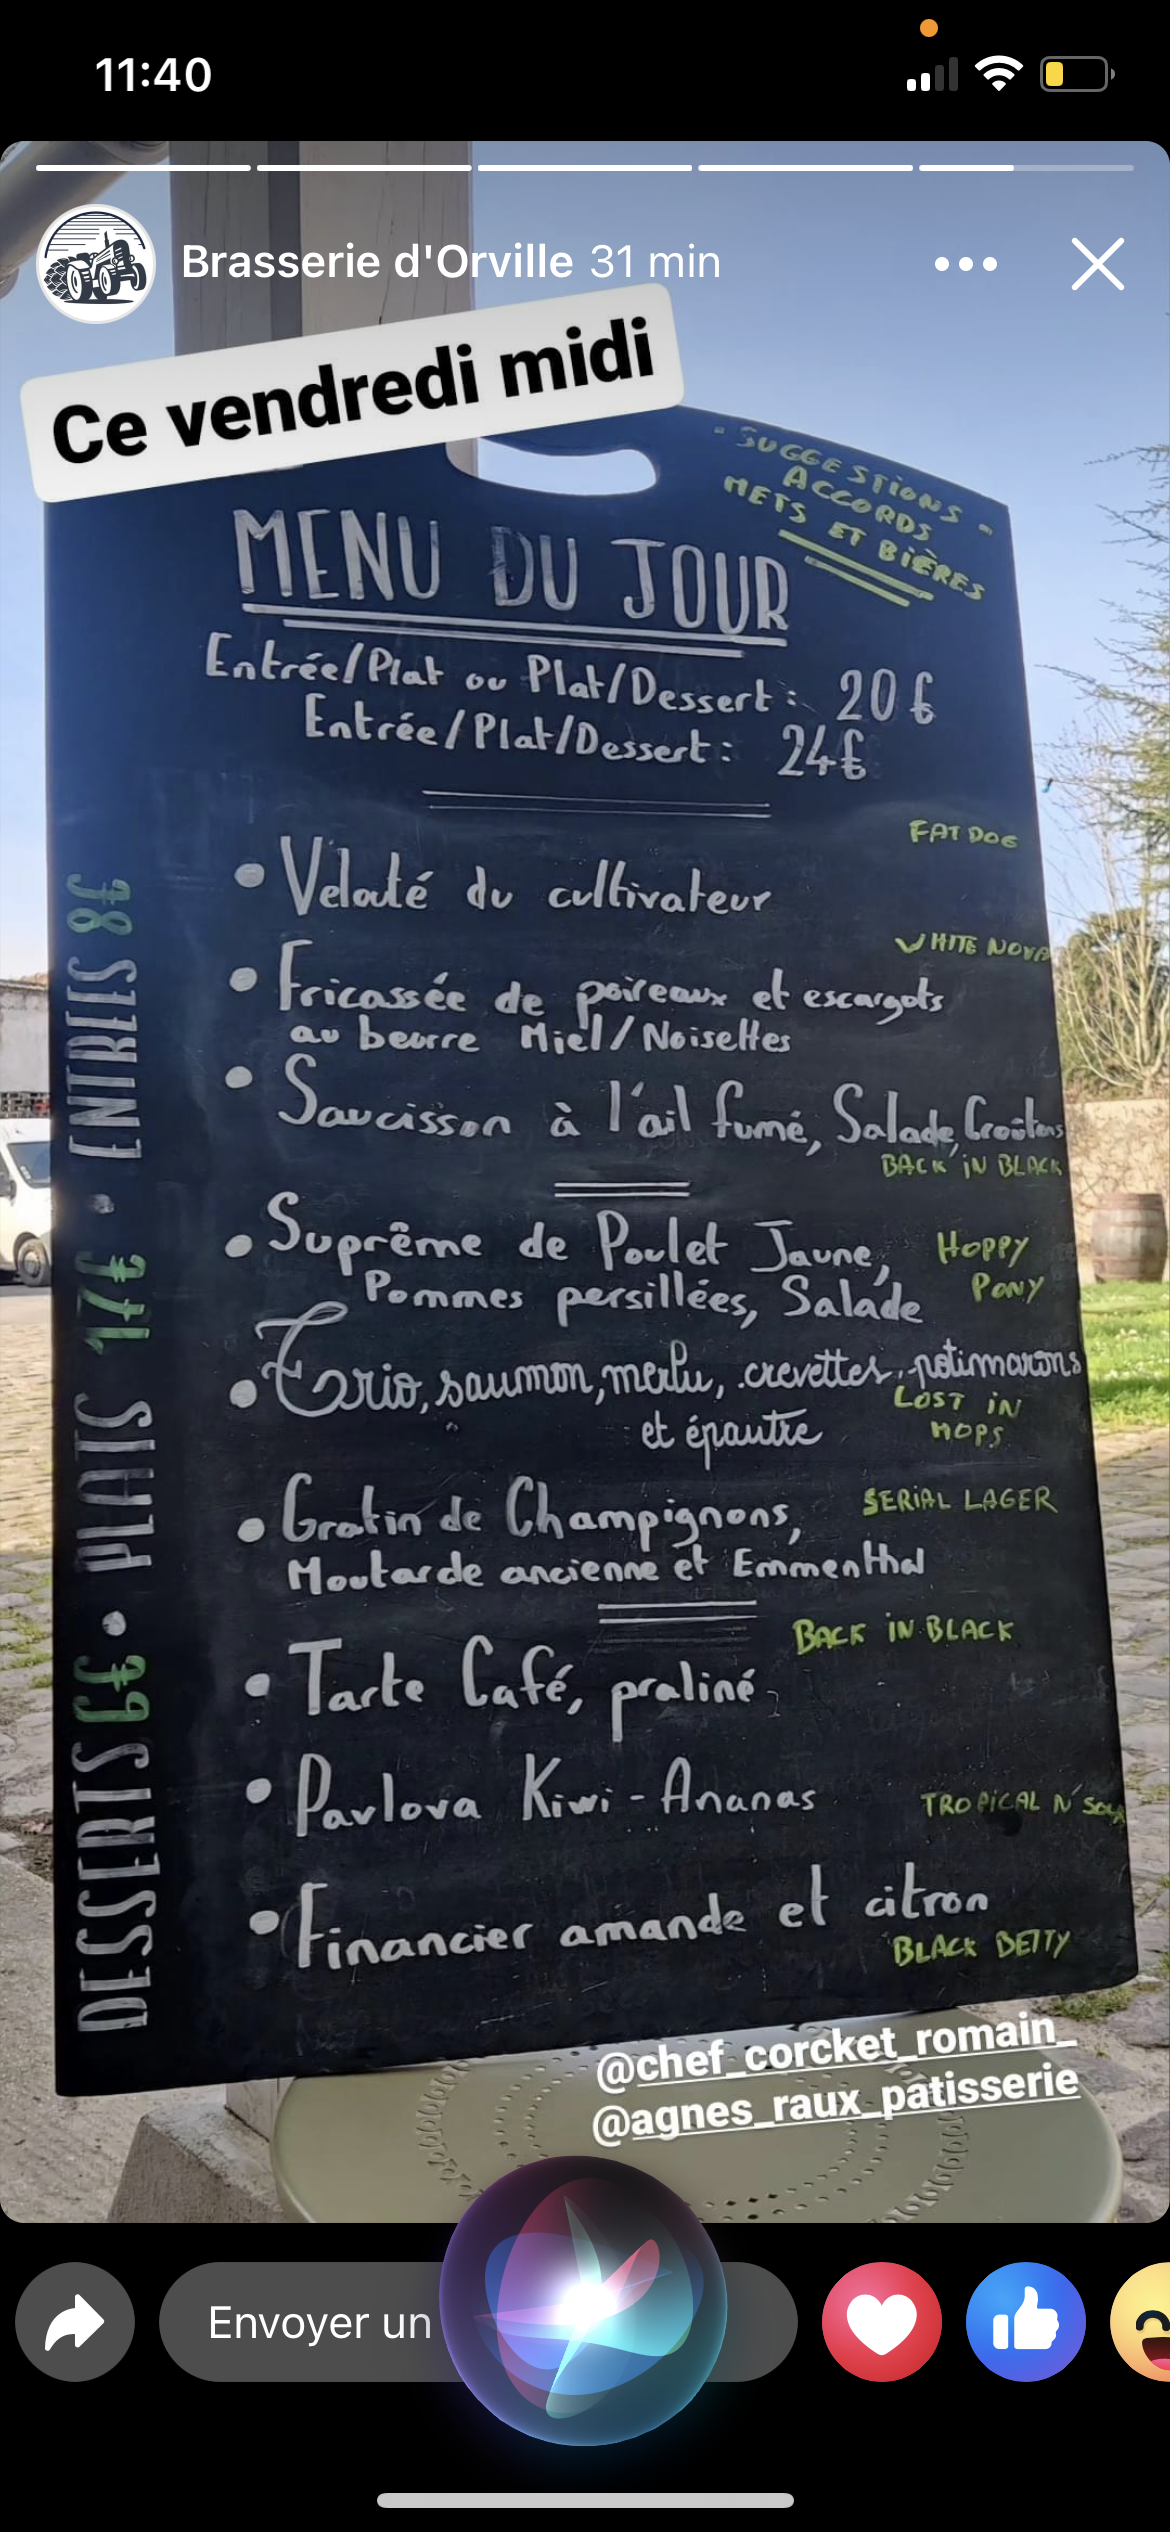 11:40
Brasserie d'Orville 31 min
Ce vendredi midi
- SUGGESTIONS -
ACCORDS
METS ET BIÈRES
MENU DU JOUR
Entrée/Plat ou Plat/Dessert: 20€
Entrée/Plat/Dessert: 24€
ENTRÉES 8€ • PLATS 17€ • DESSERTS 6€
FAT DOG
• Velouté du cultivateur
WHITE NOVA
• Fricassée de poireaux et escargots
au beurre Miel/Noisettes
• Saucisson à l'ail fumé, Salade, Croûtons
BACK IN BLACK
• Suprême de Poulet Jaune, HOPPY
Pommes persillées, Salade PONY
• Trio, saumon, merlu, crevettes, potimarons
LOST IN
et épautre HOPS
• Gratin de Champignons, SERIAL LAGER
Moutarde ancienne et Emmenthal
BACK IN BLACK
• Tarte Café, praliné
• Pavlova Kiwi-Ananas TROPICAL N'
• Financier amande et citron
BLACK BETTY
@chef_corcket_romain_
@agnes_raux_patisserie
Envoyer un